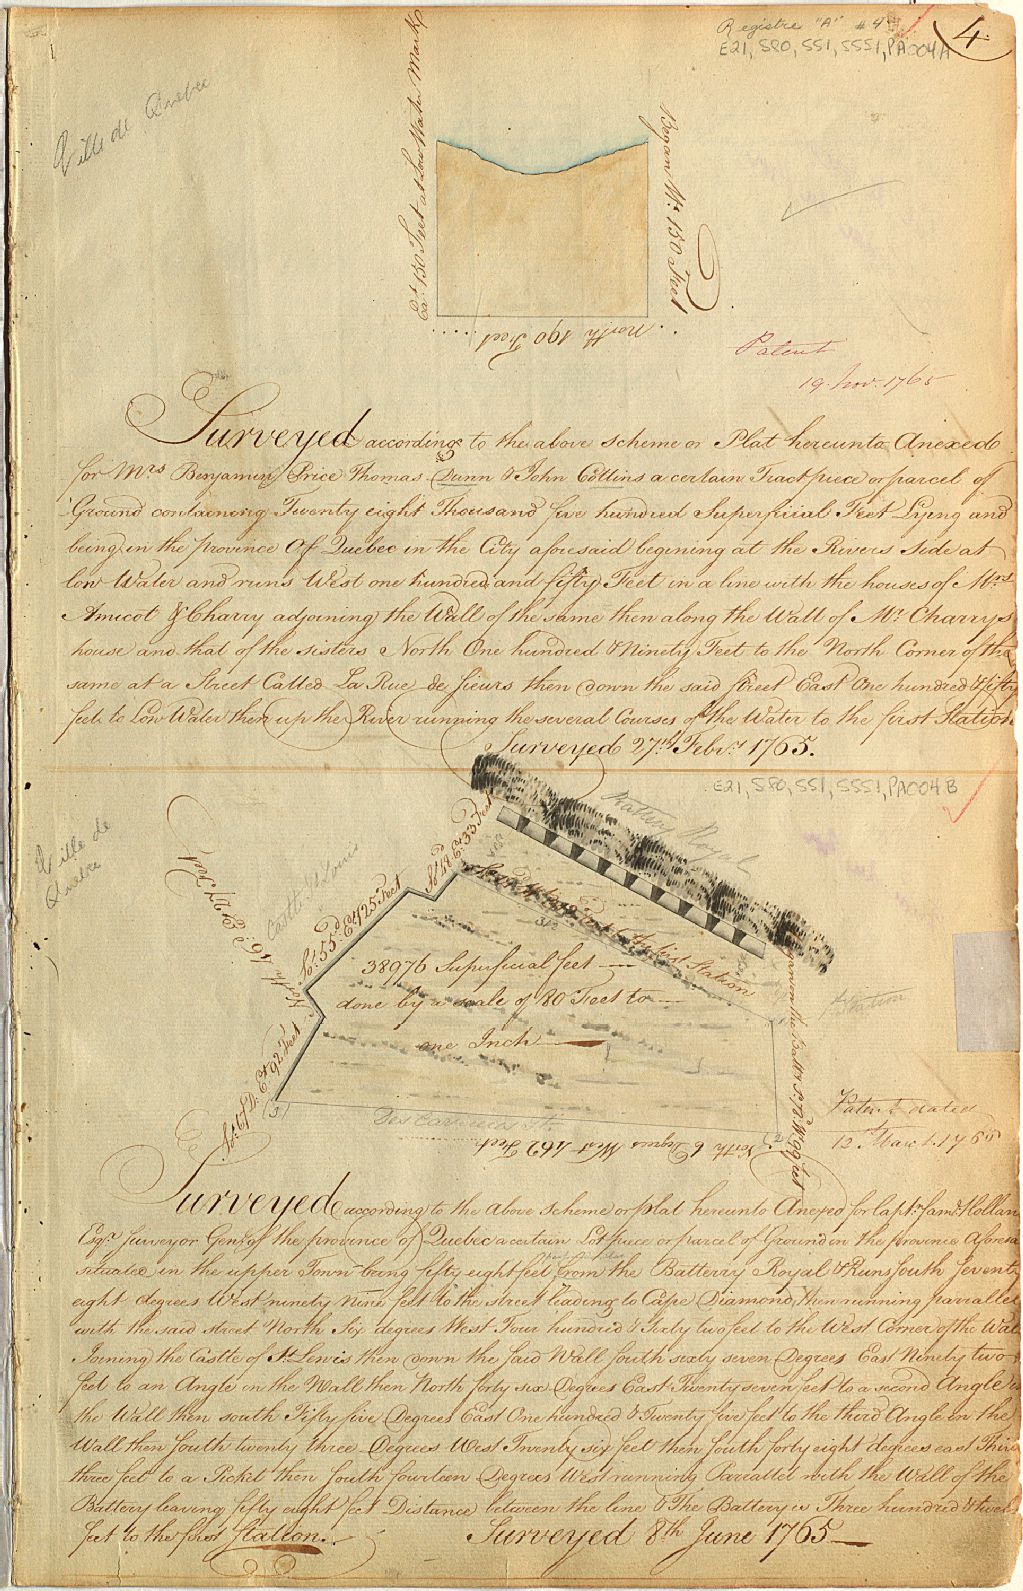 Registre "A" #4
4
E21, S80, SS1, SSS1, PA004A
Ville de Quebec
Eat. 150 Feet at Low Water Mark
Began Wt. 150 Feet
North 190 Feet
Patent
19. Nov. 1765
Surveyed according to the above scheme or Plat hereunto Anexed
for Mrs Benjamen Price Thomas Dunn & John Collins a certain Tract piece or parcel of
Ground containing Twenty eight Thousand five hundred Superficial Feet Lying and
being in the province Of Quebec in the City aforesaid begining at the Rivers side at
low Water and runs West one hundred and fifty Feet in a line with the houses of Mrs
Amicot & Charry adjoining the Wall of the same then along the Wall of Mr Charrys
house and that of the sisters North One hundred & Ninety Feet to the North Corner of the
same at a Street Called La Rue de sieurs then down the said street East One hundred & fifty
feet to Low Water then up the River running the several Courses of the Water to the first Station
Surveyed 27th Febr. 1765.
E21, S80, SS1, SSS1, PA004B
Ville de
Quebec
Battery Royal
Castle St Louis
So. 48 Et. 33 Feet
So. 55d. Et. 125 Feet
North 46d. Et. 27 Feet
So. 67d. Et. 92 Feet
312
first Station
38976 Superficial feet
done by a scale of 80 Feet to
one Inch
Station
Des Carrieres St.
North 6 Degrees West 462 Feet
Patent dated
12 March 1765
Surveyed according to the above scheme or plat hereunto Anexed for Capt. Saml Hollan
Esqr. Surveyor Genl of the province of Quebec a certain Lot piece or parcel of Ground in the province Aforesa
situated in the upper Town being fifty eight feet from the Batterry Royal & Runs South Seventy
eight degrees West ninety Nine feet to the street leading to Cape Diamond, then running parrallel
with the said street North Six degrees West Four hundred & Sixty two feet to the West Corner of the Wall
Joining the Castle of St Lewis then down the said Wall South sixty seven Degrees East Ninety two
feet to an Angle in the Wall then North forty six Degrees East Twenty seven feet to a second Angle in
the Wall then south Fifty five Degrees East One hundred & Twenty five feet to the third Angle in the
Wall then South twenty three Degrees West Twenty six feet then South forty eight degrees east Thirty
three feet to a Picket then South fourteen Degrees West running Parallel with the Wall of the
Battery leaving fifty eight feet Distance between the line & The Battery is Three hundred & twelve
feet to the first Station.
Surveyed 8th June 1765